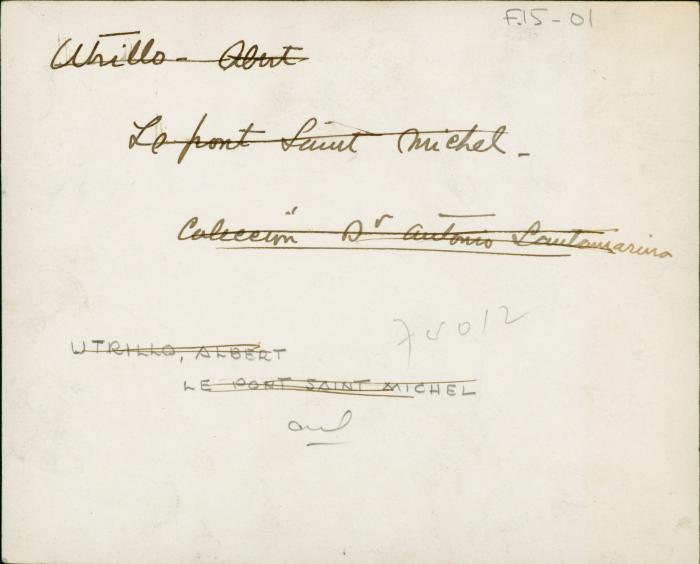 F.15-01
Utrillo - Albert
Le pont Saint Michel -
Colección Dr Antonio Santamarina
UTRILLO, ALBERT
LE PONT SAINT MICHEL